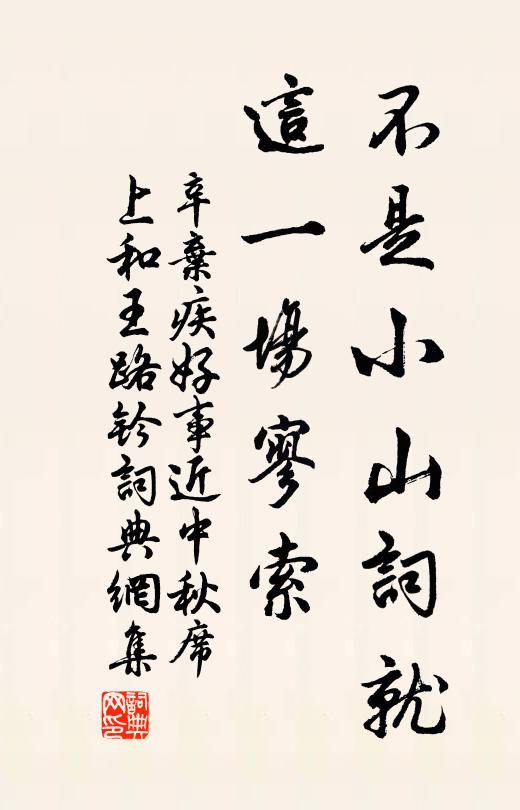 不是小山詞就
這一場寥索
辛棄疾好事近中秋席
上和王路鈐詞典網集
詞典网印